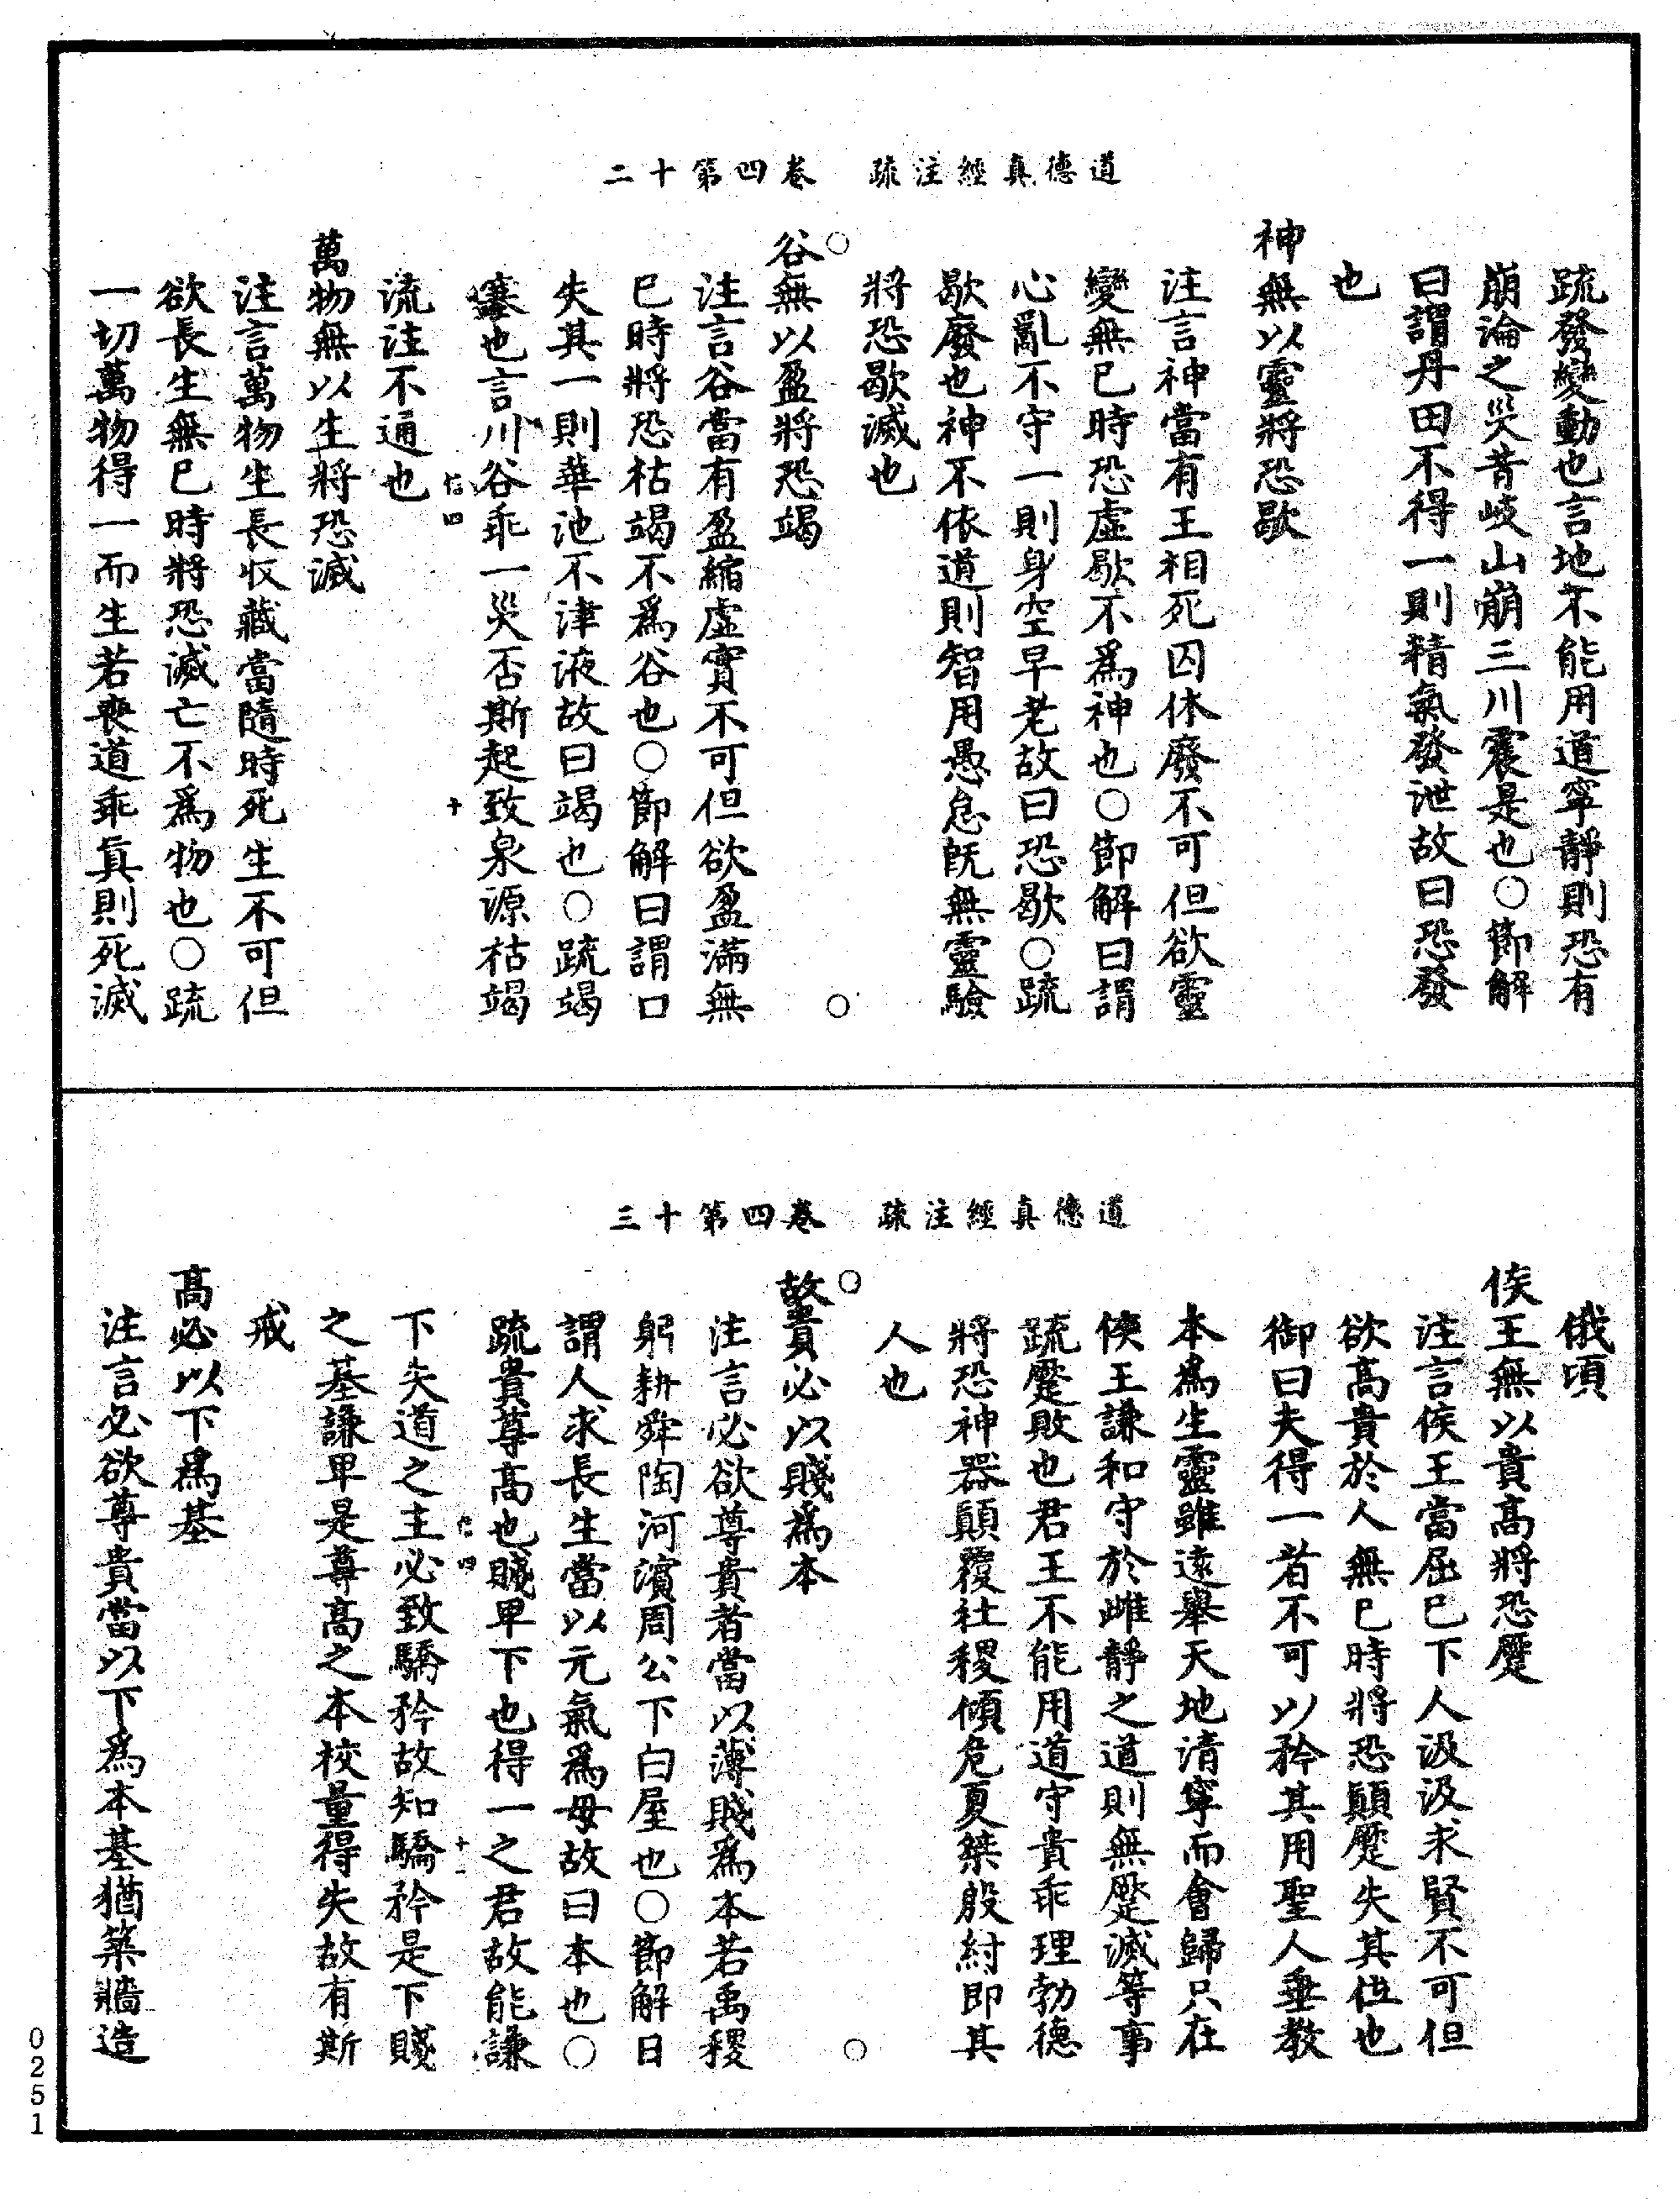 道德真經注疏　卷四第十二
疏發變動也言地不能用道寧靜則恐有
崩淪之災昔岐山崩三川震是也○節解
曰謂丹田不得一則精氣發泄故曰恐發
也
神無以靈將恐歇
注言神當有王相死囚休廢不可但欲靈
變無已時恐虛歇不爲神也○節解曰謂
心亂不守一則身空早老故曰恐歇○疏
歇廢也神不依道則智用愚怠旣無靈驗
將恐歇滅也
○　○
谷無以盈將恐竭
注言谷當有盈縮虛實不可但欲盈滿無
已時將恐枯竭不爲谷也○節解曰謂口
失其一則華池不津液故曰竭也○疏竭
塞也言川谷乖一災否斯起致泉源枯竭
四　十
流注不通也
萬物無以生將恐滅
注言萬物生長收藏當隨時死生不可但
欲長生無已時將恐滅亡不爲物也○疏
一切萬物得一而生若喪道乖真則死滅
道德真經注疏　卷四第十三
俄頃
侯王無以貴高將恐蹷
注言侯王當屈已下人汲汲求賢不可但
欲高貴於人無已時將恐顛蹷失其位也
御曰夫得一者不可以矜其用聖人垂教
本爲生靈雖遠舉天地清寧而會歸只在
侯王謙和守於雌靜之道則無蹷滅等事
疏蹷敗也君王不能用道守貴乖理勃德
將恐神器顛覆社稷傾危夏桀殷紂即其
人也
○　○
故貴必以賤爲本
注言必欲尊貴者當以薄賤爲本若禹稷
躬耕舜陶河濱周公下白屋也○節解曰
謂人求長生當以元氣爲母故曰本也○
疏貴尊高也賤卑下也得一之君故能謙
四　十一
下失道之主必致驕矜故知驕矜是下賤
之基謙卑是尊高之本校量得失故有斯
戒
高必以下爲基
注言必欲尊貴當以下爲本基猶築牆造
0251